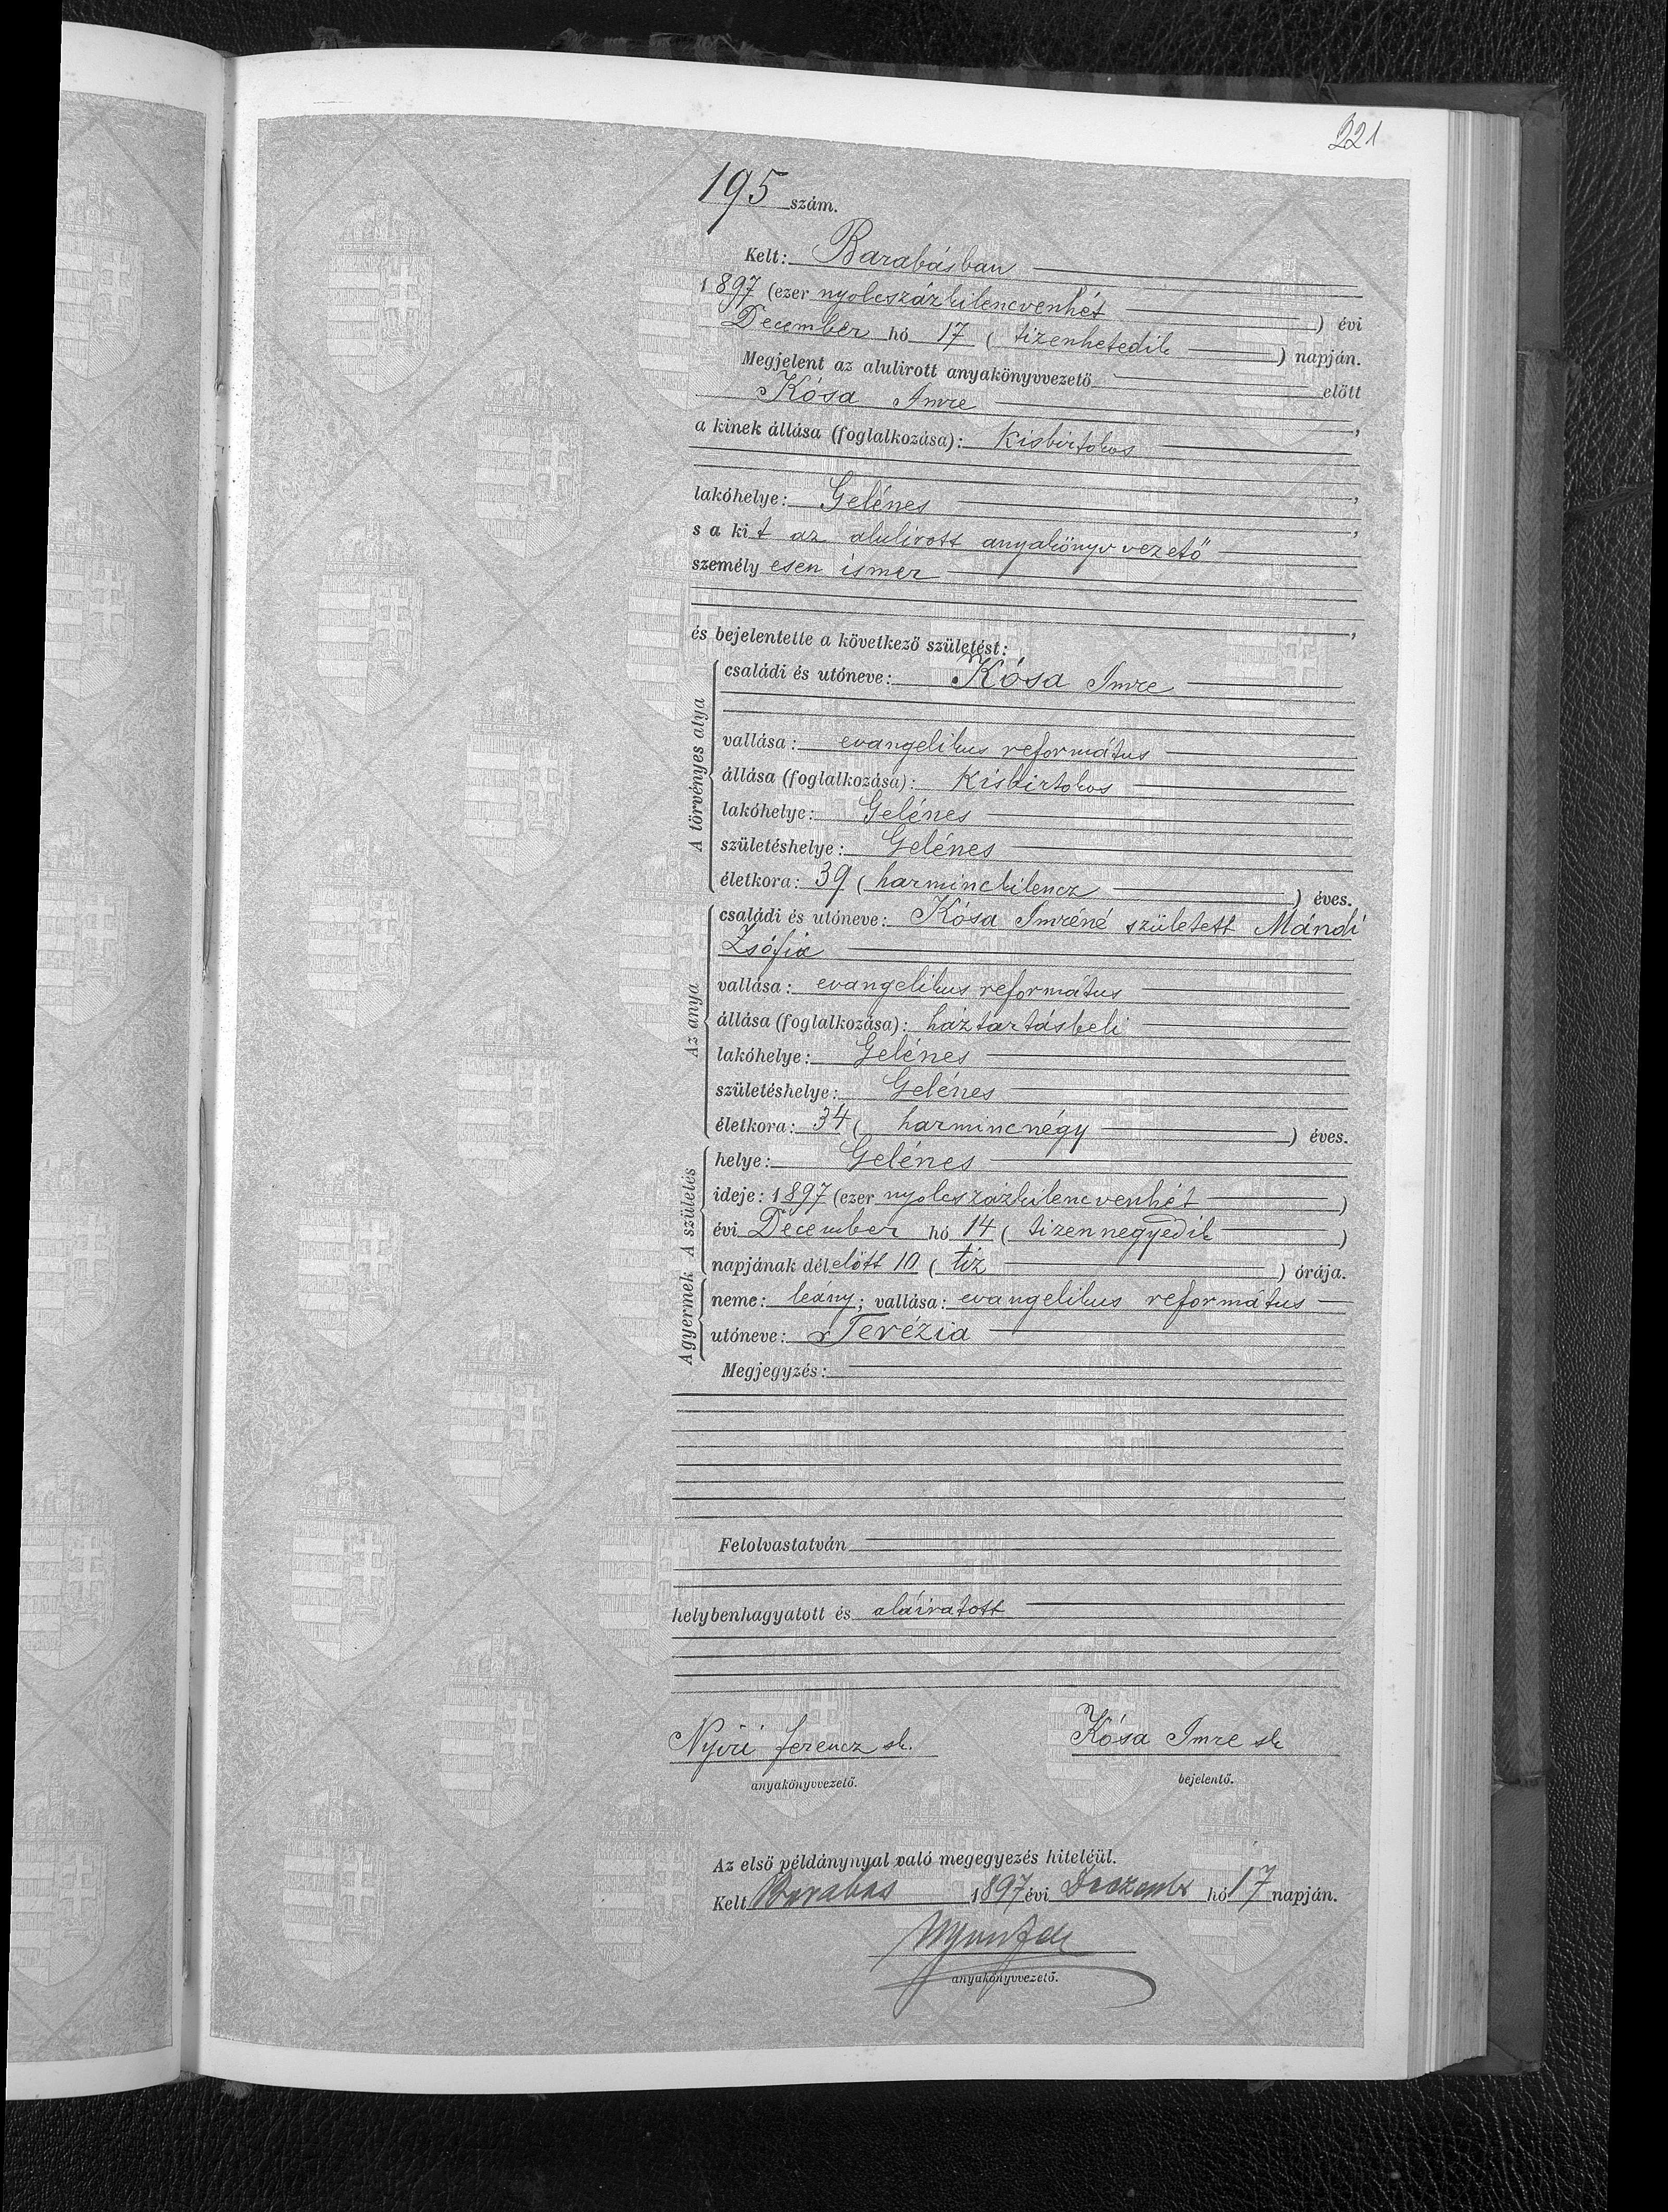 221
195 szám.
Kelt: Barabásban
1897 (ezer nyolcszázkilencvenhét ) évi
December hó 17 ( tizenhetedik ) napján.
Megjelent az alulirott anyakönyvvezető előtt
Kósa Imre ,
a kinek állása (foglalkozása): kisbirtokos
,
lakóhelye: Gelénes ,
s a kit az alulirott anyakönyvvezető
személy esen ismer
,
és bejelentette a következő születést:
A törvényes atya
családi és utóneve: Kósa Imre
vallása: evangelikus református
állása (foglalkozása): Kisbirtokos
lakóhelye: Gelénes
születéshelye: Gelénes
életkora: 39 ( harminckilencz ) éves.
Az anya
családi és utóneve: Kósa Imréné született Mándi
Zsófia
vallása: evangelikus református
állása (foglalkozása): háztartásbeli
lakóhelye: Gelénes
születéshelye: Gelénes
életkora: 34 ( harmincnégy ) éves.
A születés
helye: Gelénes
ideje: 1897 (ezer nyolcszázkilencvenhét )
évi December hó 14 ( tizennegyedik )
napjának délelőtt 10 ( tiz ) órája.
A gyermek
neme: leány; vallása: evangelikus református
utóneve: Terézia
Megjegyzés:
Felolvastatván
helybenhagyatott és aláiratott
Nyiri Ferencz sk. Kósa Imre sk
anyakönyvvezető. bejelentő.
Az első példánynyal való megegyezés hiteléül.
Kelt Barabás 1897 évi Deczemb hó 17 napján.
anyakönyvvezető.